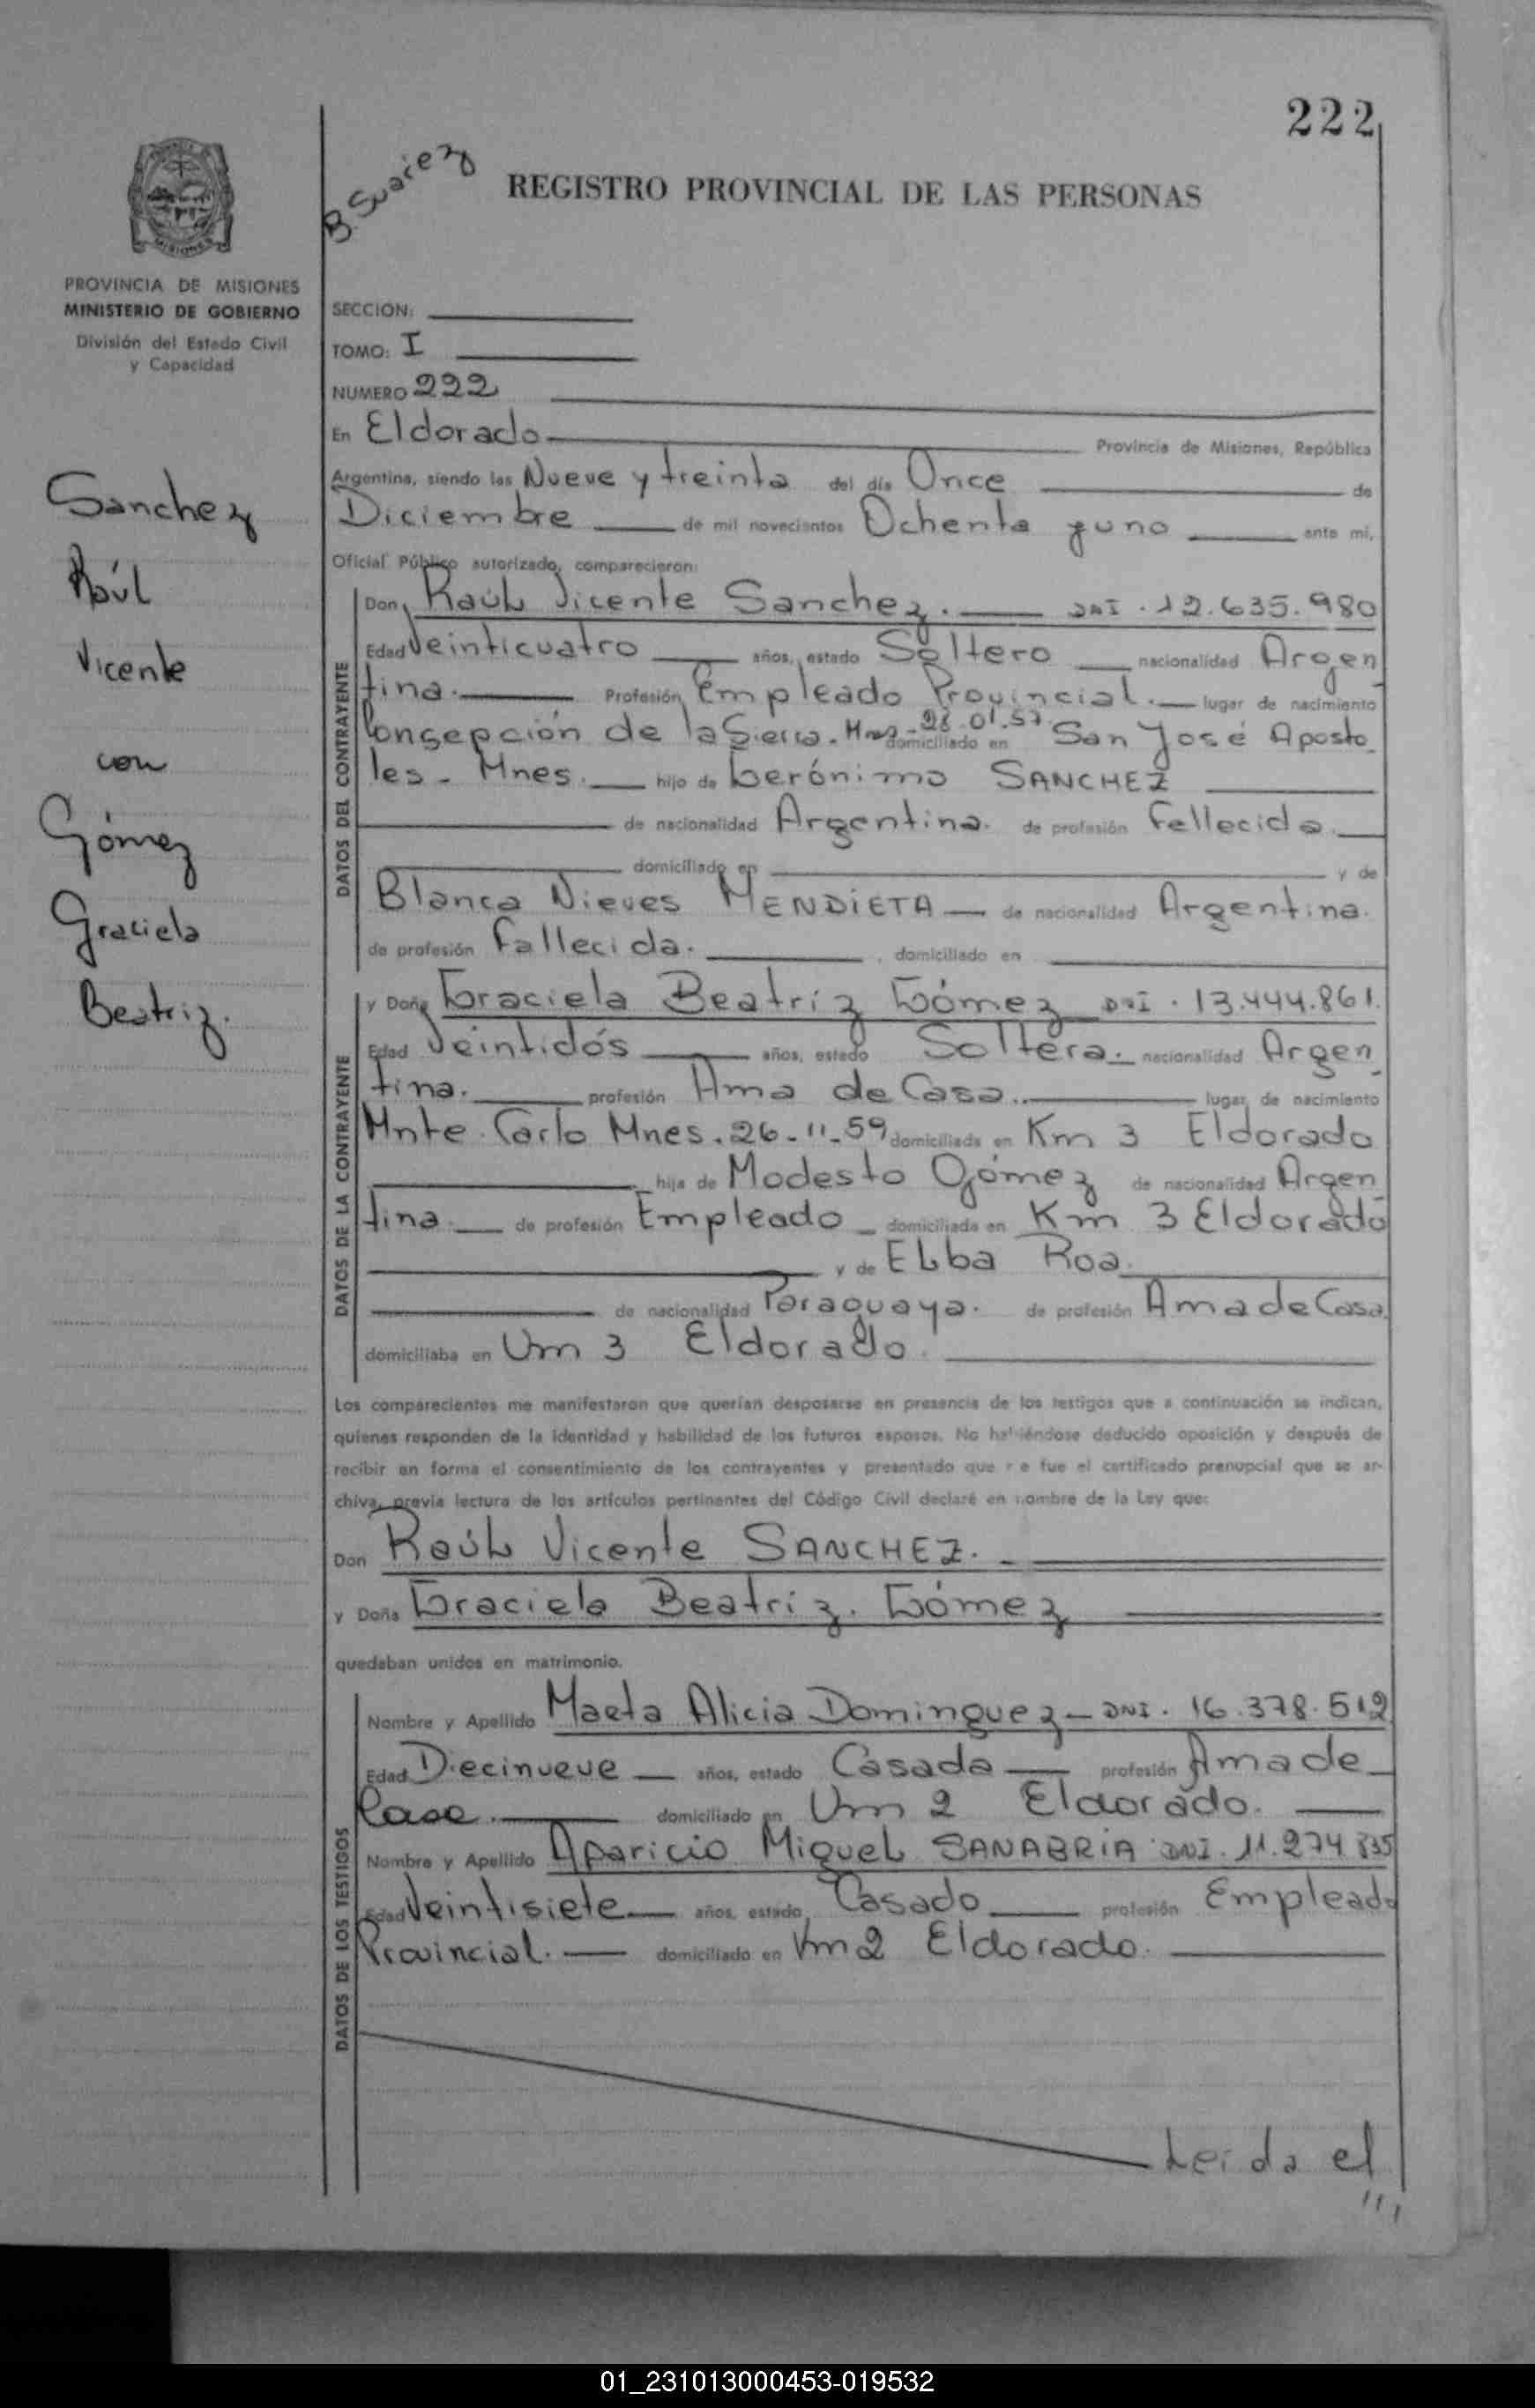 222
B. Suarez
REGISTRO PROVINCIAL DE LAS PERSONAS
MISIONES
PROVINCIA DE MISIONES
MINISTERIO DE GOBIERNO
División del Estado Civil
y Capacidad
Sanchez
Raúl
Vicente
con
Gómez
Graciela
Beatriz.
SECCION:
TOMO: I
NUMERO 222
En Eldorado Provincia de Misiones, República
Argentina, siendo las Nueve y treinta del día Once de
Diciembre de mil novecientos Ochenta y uno ante mi,
Oficial Público autorizado, comparecieron:
DATOS DEL CONTRAYENTE
Don Raúl Vicente Sanchez. DNI. 12.635.980
Edad Veinticuatro años, estado Soltero nacionalidad Argen
tina. Profesión Empleado Provincial. lugar de nacimiento
Consepción de la Sierra. Mnes - 28.01.57. domiciliado en San José Aposto
les - Mnes. hijo de Gerónimo SANCHEZ
de nacionalidad Argentina. de profesión Fellecido.
domiciliado en y de
Blanca Nieves MENDIETA de nacionalidad Argentina.
de profesión Fallecida. domiciliado en
DATOS DE LA CONTRAYENTE
y Doña Graciela Beatríz Gómez DNI. 13.444.861.
Edad Veintidós años, estado Soltera. nacionalidad Argen
tina. profesión Ama de Casa. lugar de nacimiento
Mnte. Carlo Mnes. 26-11-59 domiciliada en Km 3 Eldorado
hija de Modesto Gómez de nacionalidad Argen
tina. de profesión Empleado domiciliado en Km 3 Eldorado
y de Elba Roa.
de nacionalidad Paraguaya. de profesión Ama de Casa.
domiciliaba en Km 3 Eldorado.
Los comparecientes me manifestaron que querían desposarse en presencia de los testigos que a continuación se indican,
quienes responden de la identidad y habilidad de los futuros esposos. No habiéndose deducido oposición y después de
recibir en forma el consentimiento de los contrayentes y presentado que me fue el certificado prenupcial que se ar-
chiva, previa lectura de los artículos pertinentes del Código Civil declaré en nombre de la Ley que:
Don Raúl Vicente SANCHEZ.
y Doña Graciela Beatríz. Gómez
quedaban unidos en matrimonio.
DATOS DE LOS TESTIGOS
Nombre y Apellido Marta Alicia Dominguez - DNI. 16.378.512
Edad Diecinueve años, estado Casada profesión Ama de
Casa. domiciliado en Km 2 Eldorado.
Nombre y Apellido Aparicio Miguel SANABRIA DNI. 11.274.835
Edad Veintisiete años, estado Casado profesión Empleado
Provincial. domiciliado en Km 2 Eldorado.
Leida el
///
01_231013000453-019532